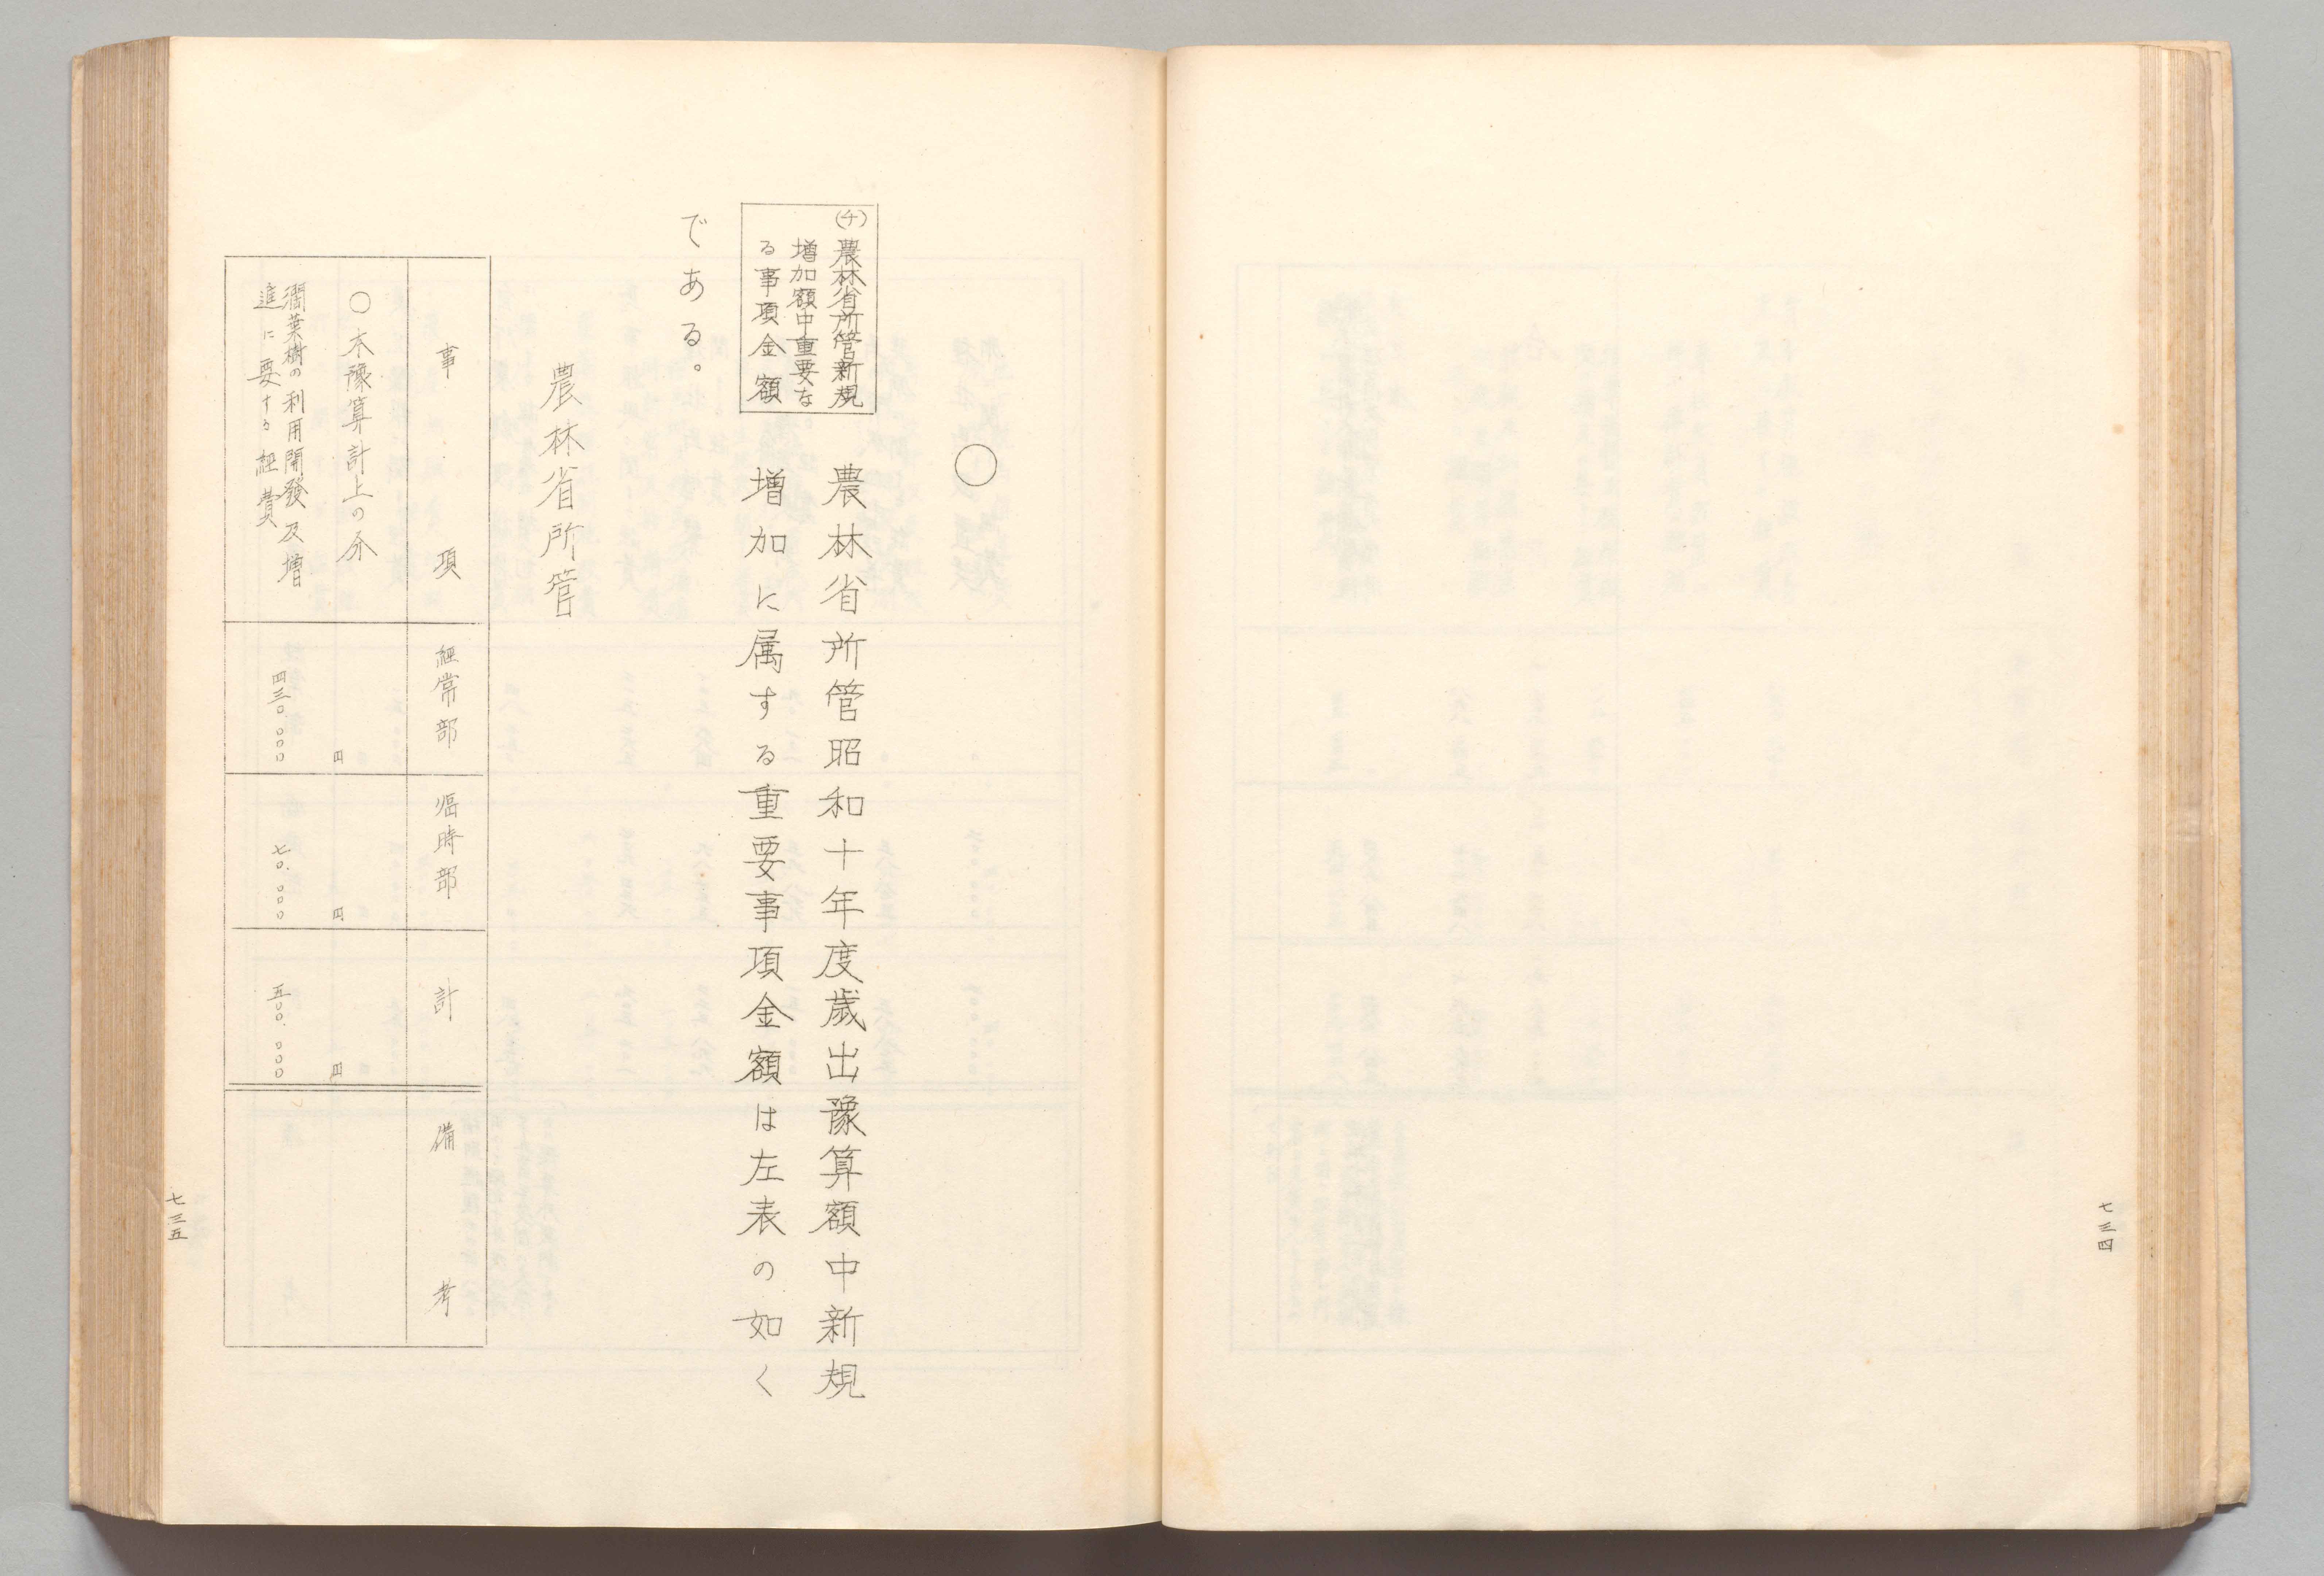 七三四
○
(チ)農林省所管新規
増加額中重要な
る事項金額
農林省所管昭和十年度歲出豫算額中新規
増加に属する重要事項金額は左表の如く
である。
農林省所管
事項 経常部 臨時部 計 備考
○本豫算計上の分 円 円 円
濶葉樹の利用開發及増
進に要する経費 四三〇.〇〇〇 七〇.〇〇〇 五〇〇.〇〇〇
七三五